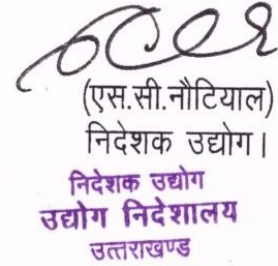 (एस.सी.नौटियाल)
निदेशक उद्योग।
निदेशक उद्योग
उद्योग निदेशालय
उत्तराखण्ड